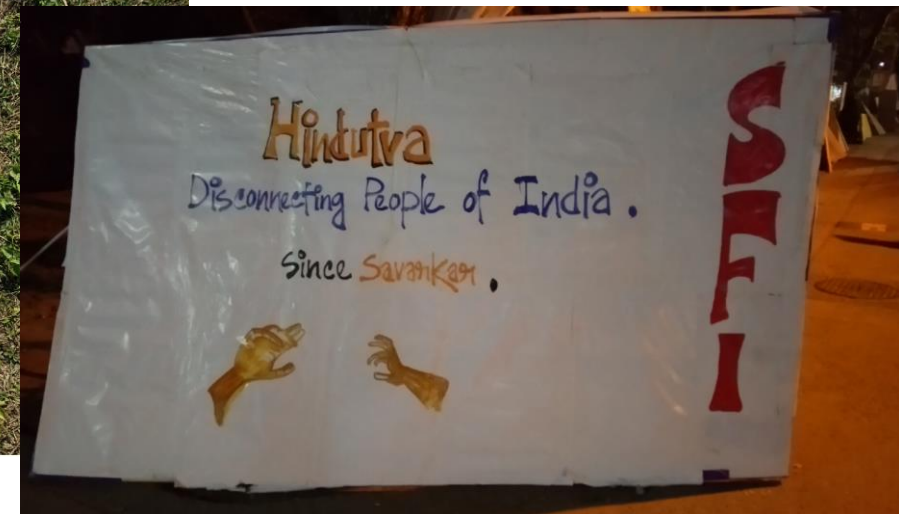 Hindutva
Disconnecting People of India .
Since Savarkar .
SFI